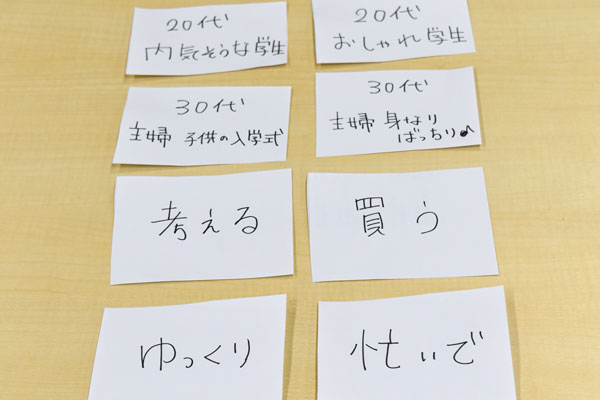 20代
内気そうな学生
20代
おしゃれ学生
30代
主婦 子供の入学式
30代
主婦 身なり
ばっちり♪
考える
買う
ゆっくり
忙いで